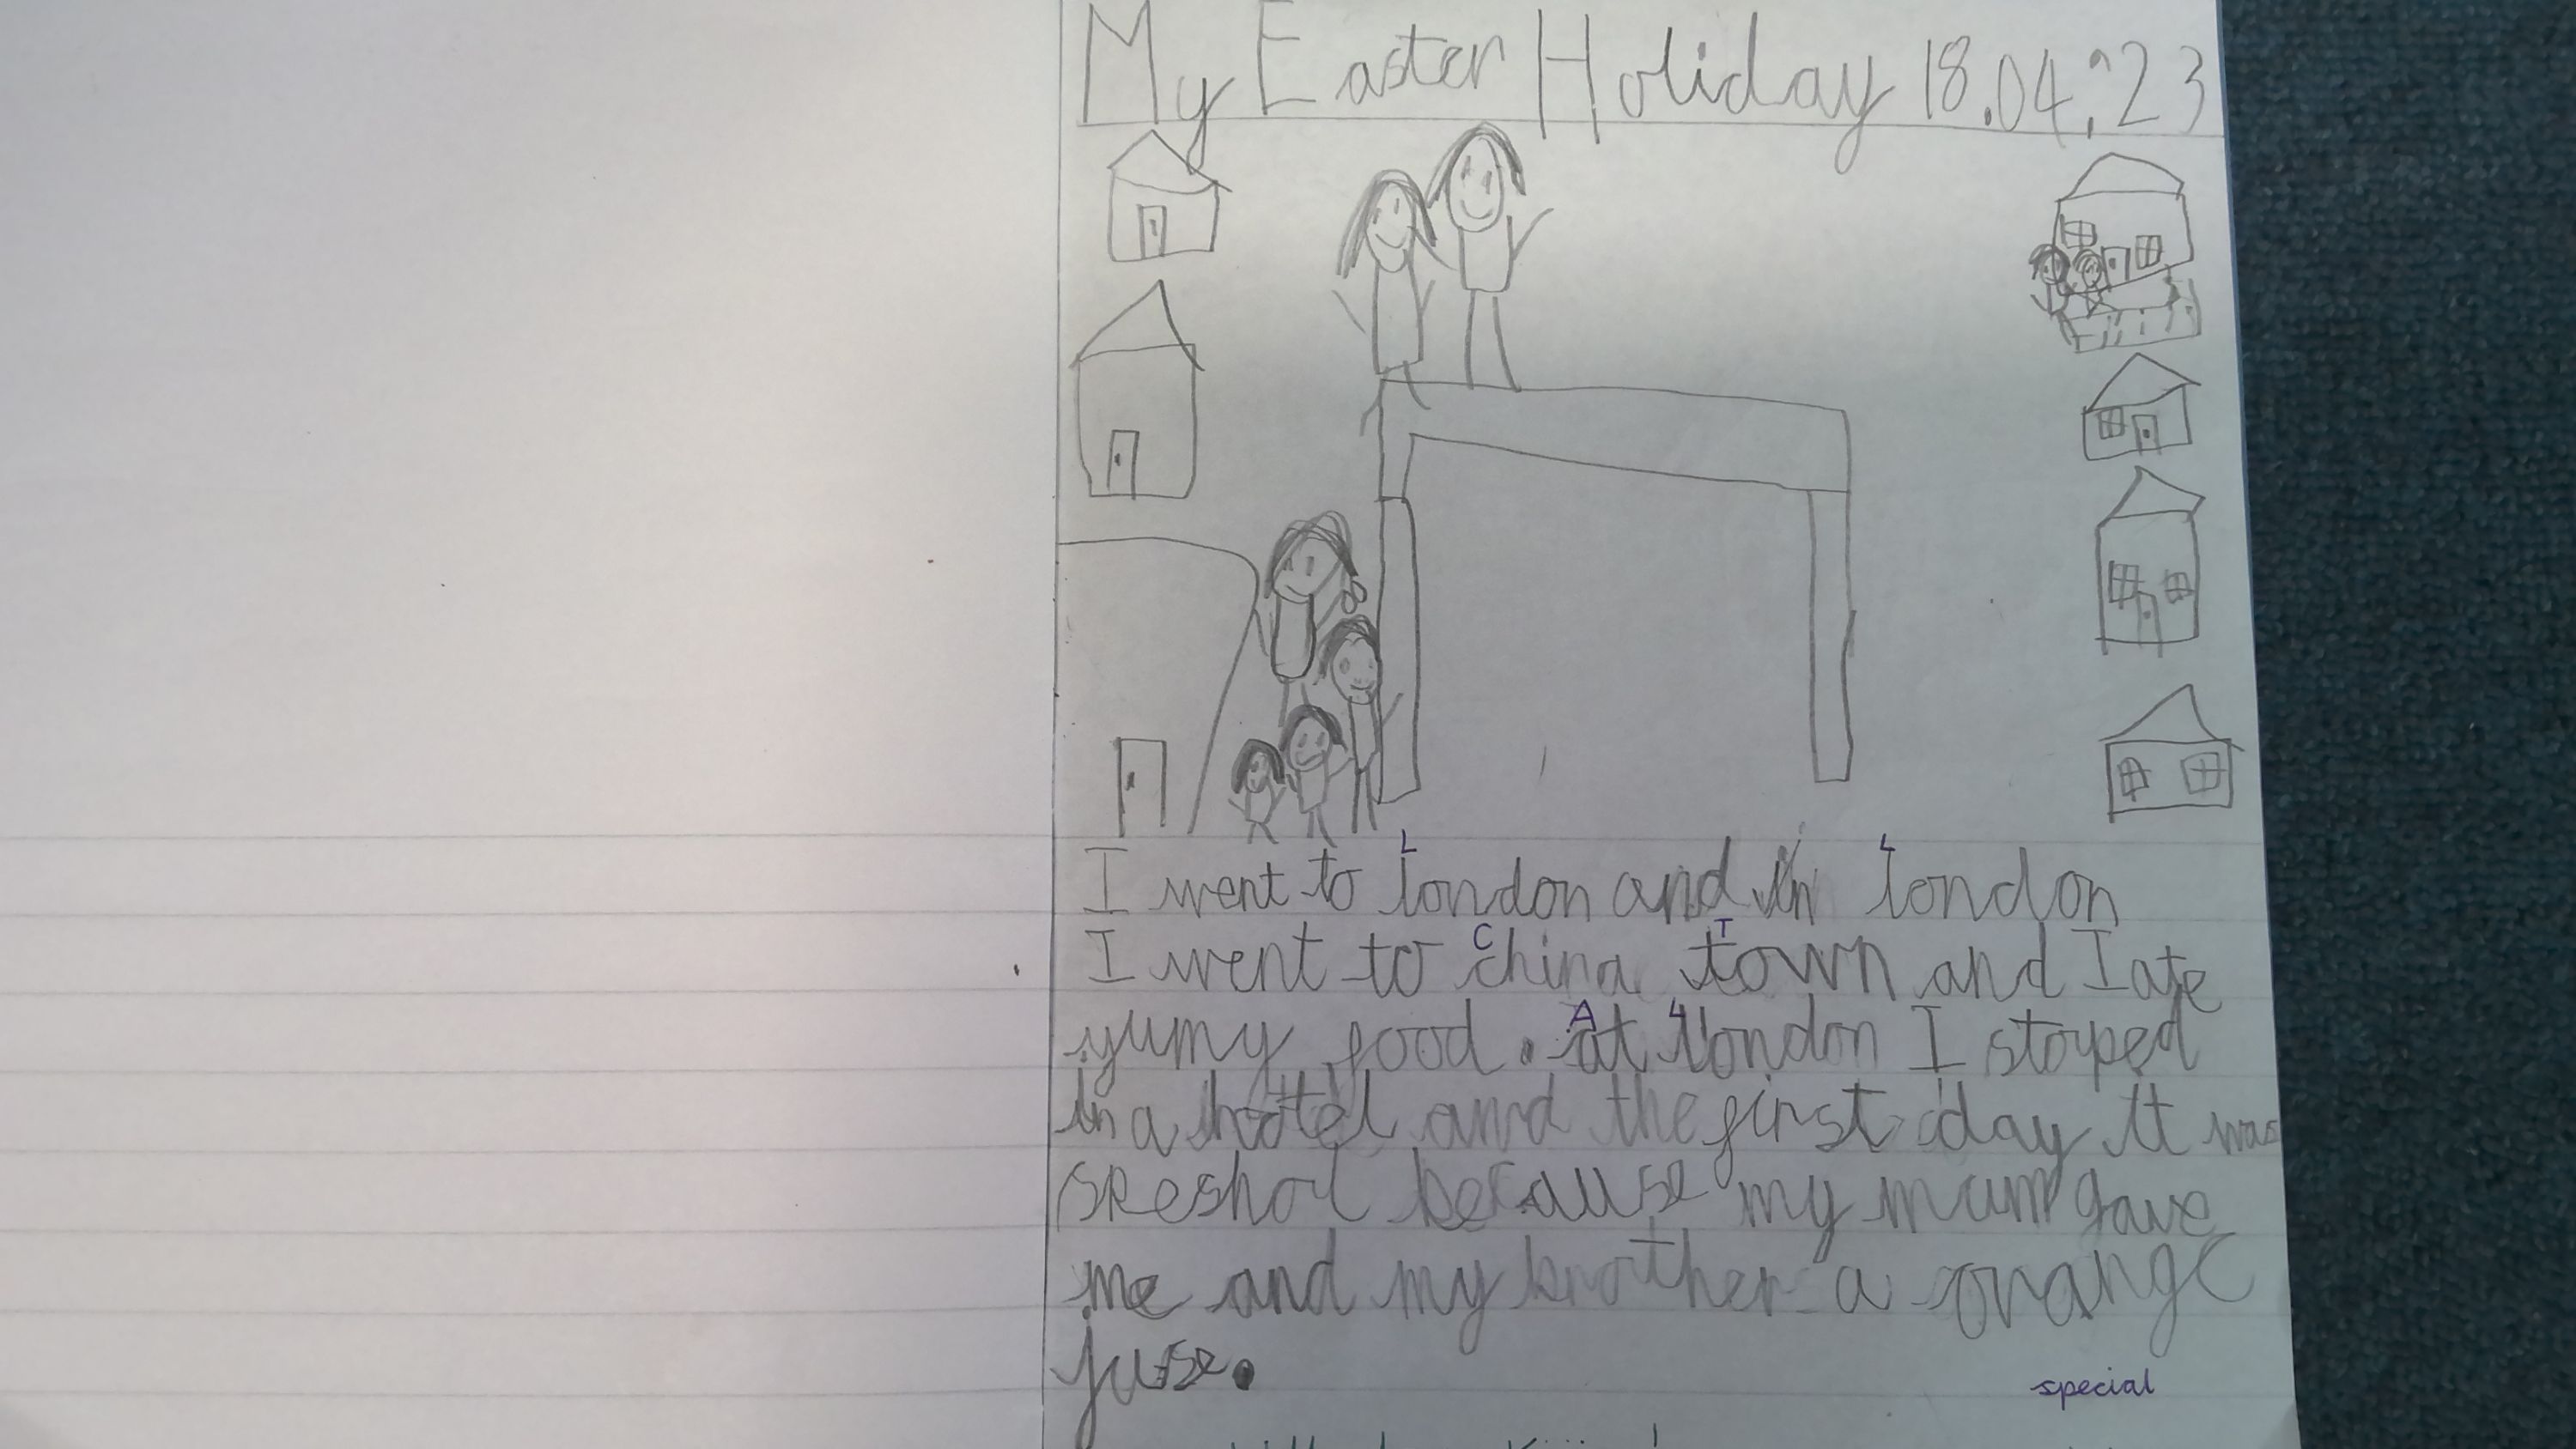 My Easter Holiday 18.04.23
L L
I went to london and in london
C T
I went to china town and I ate
A L
yumy food. at london I stoped
in a hotel and the first day it was
speshol because my mum gave
me and my brother a orange
juse.
special